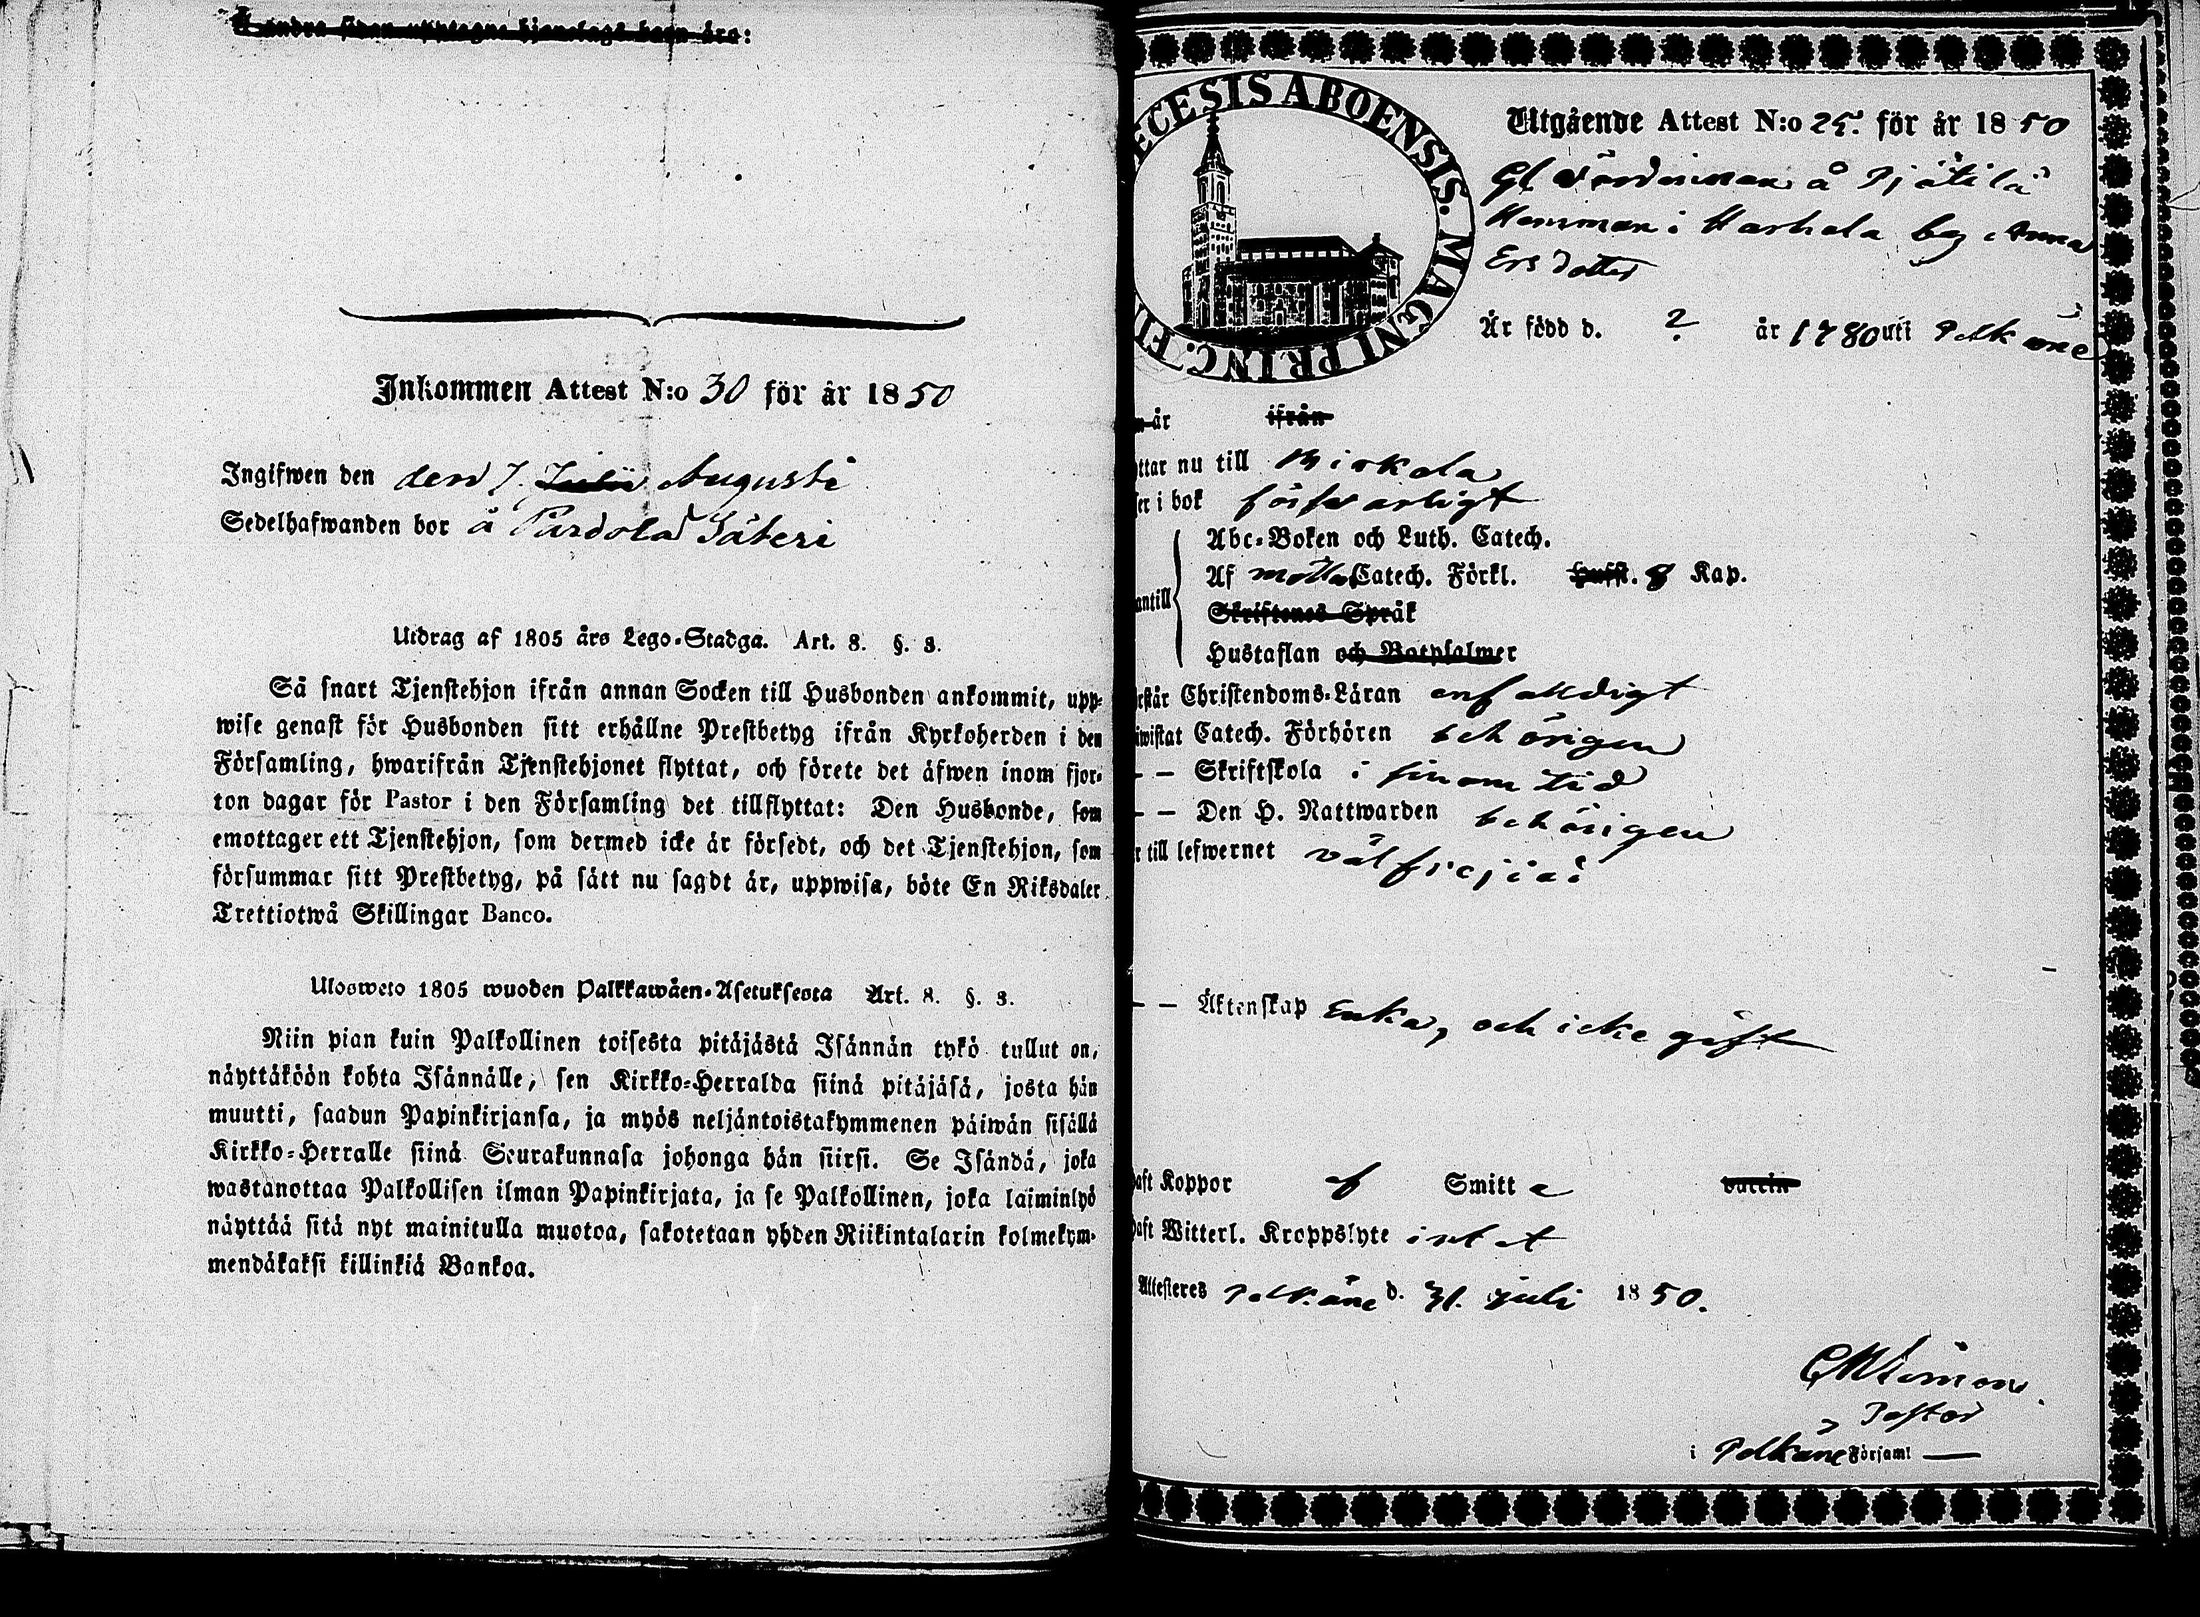 Å andra sidan upptagne hjonelags barn äro:
Inkommen Attest N:o 30 för år 1850
Ingifwen den den 7. Julii Augusti
Sedelhafwanden bor å Purdola Säteri
Utdrag af 1805 års Lego-Stadga. Art. 8. §. 3.
Så snart Tjenstehjon ifrån annan Socken till Husbonden ankommit, upp-
wise genast för Husbonden sitt erhållne Prestbetyg ifrån Kyrkoherden i den
Församling, hwarifrån Tjenstehjonet flyttat, och förete det äfwen inom fjor-
ton dagar för Pastor i den Församling det tillflyttat: Den Husbonde, som
emottager ett Tjenstehjon, som dermed icke är försedt, och det Tjenstehjon, som
försummar sitt Prestbetyg, på sätt nu sagdt är, uppwisa, böte En Riksdaler
Trettiotwå Skillingar Banco.
Uloswеto 1805 wuoden Palkkawäen-Asetuksesta Art. 8. §. 3.
Niin pian kuin Palkollinen toisesta pitäjästä Isännän tykö tullut on,
näyttäköön kohta Isännälle, sen Kirkko-Herralda siinä pitäjäsä, josta hän
muutti, saadun Papinkirjansa, ja myös neljäntoistakymmenen päiwän sisällä
Kirkko-Herralle siinä Seurakunnasa johonga hän siirsi. Se Isändä, joka
wastanottaa Palkollisen ilman Papinkirjata, ja se Palkollinen, joka laiminlyö
näyttää sitä nyt mainitulla muotoa, sakotetaan yhden Riikintalarin kolmekym-
mendäkaksi killinkiä Bankoa.
ECESIS ABOENSIS. MAGNI PRINC. FI
Utgående Attest N:o 25. för år 1850
Gl Värdinnan å Pjätilä
Hemman i Harhala by Anna
Ers dotter
Är född d. ? år 1780 uti Pelkäne
år ifrån
ttar nu till Birkala
ser i bok försvarligt
antill
Abc-Boken och Luth. Catech.
Af Catech. Förkl. Husst. 8 Kap.
Skriftenes Språk
Hustaflan och Botpsalmer
rstår Christendoms-Läran enfalldigt
iwistat Catech. Förhören behörigen
– – Skriftskola i sinom tid
– – Den H. Nattwarden behörigen
r till lefwernet välfrejdad
– – Äktenskap Enka, och icke gift
haft Koppor af Smitta vaccin
haft Witterl. Kroppslyte intet
Attesteres Pelkäne d. 31. juli 1850.
Pastor
i Pelkäne Församl